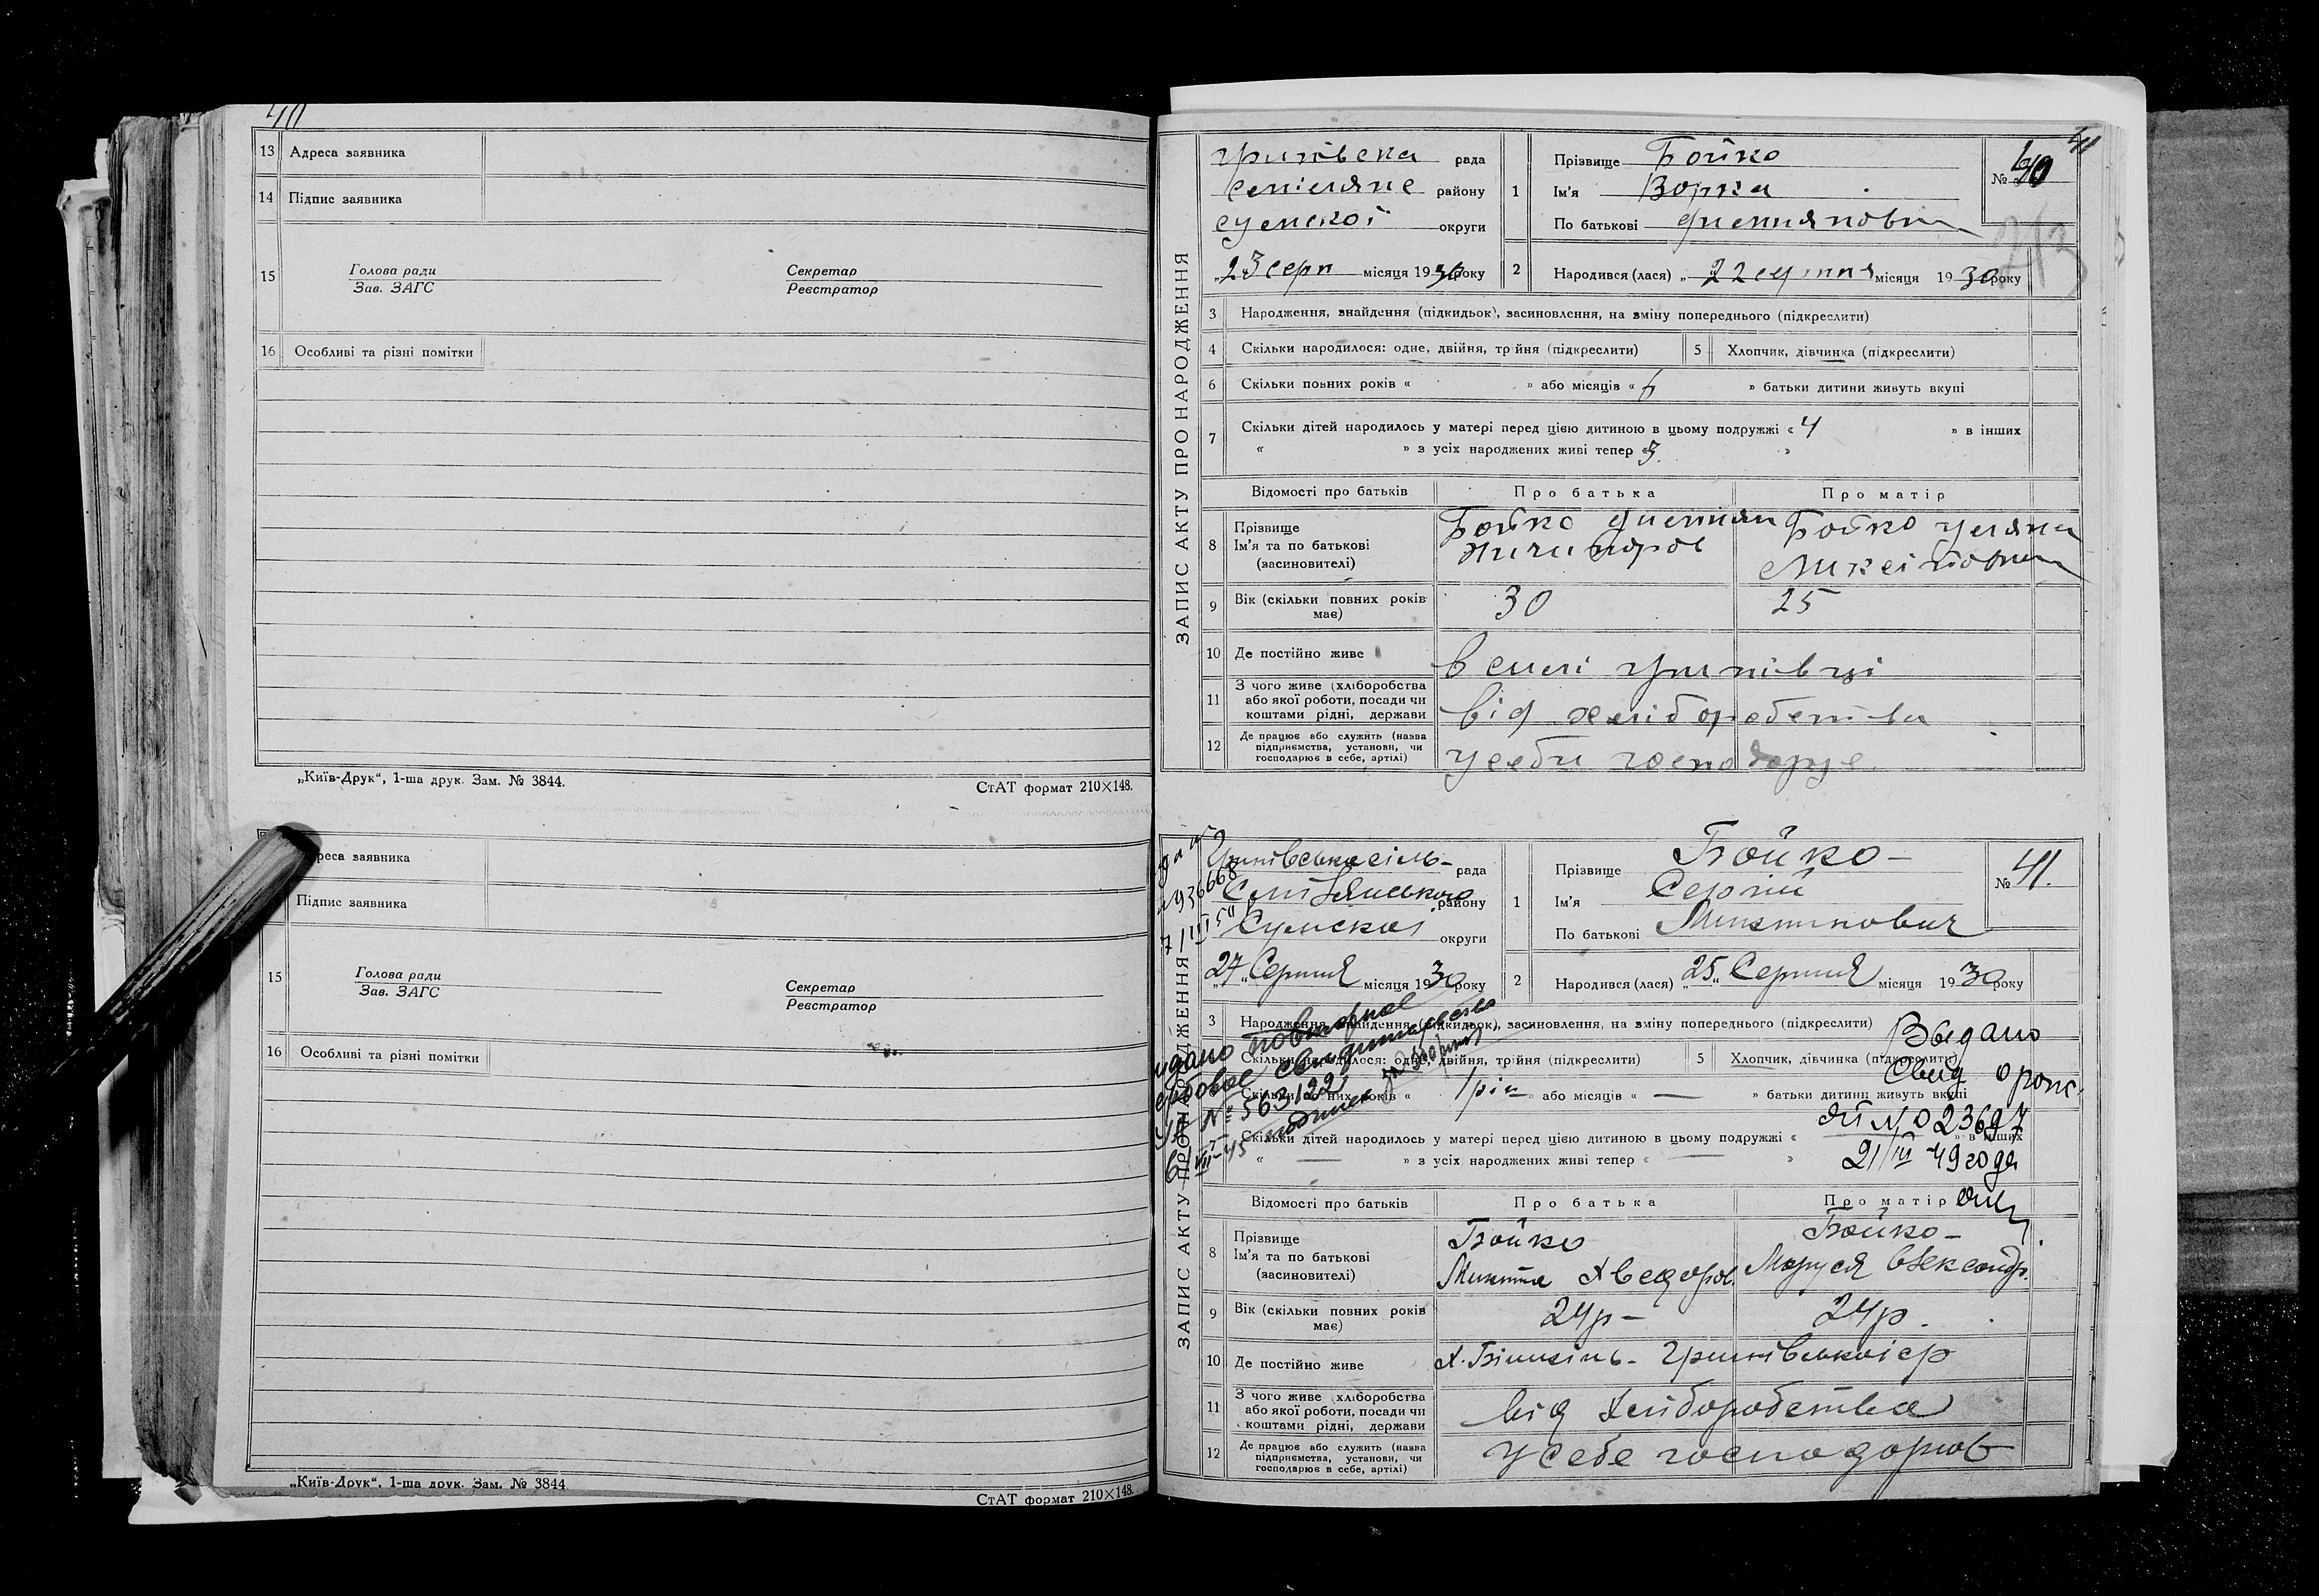 40
13 Адреса заявника
14 Підпис заявника
15 Голова ради Секретар
Зав. ЗАГС Реєстратор
16 Особливі та різні помітки
„Київ-Друк“, 1-ша друк. Зам. № 3844. СтАТ формат 210×148.
реса заявника
Підпис заявника
15 Голова ради Секретар
Зав. ЗАГС Реєстратор
16 Особливі та різні помітки
„Київ-Друк“, 1-ша друк. Зам. № 3844 СтАТ формат 210×148.
41
ЗАПИС АКТУ ПРО НАРОДЖЕННЯ
рада
району
Сумської округи
„23 серп місяця 1930 року
1 Прізвище Бойко
Ім'я Зорка
По батькові
№ 40
2 Народився (лася) „22 серпня місяця 1930 року
213
3 Народження, знайдення (підкидьок), засиновлення, на зміну попереднього (підкреслити)
4 Скільки народилося: одне, двійня, трійня (підкреслити) 5 Хлопчик, дівчинка (підкреслити)
6 Скільки повних років « » або місяців « 6 » батьки дитини живуть вкупі
7 Скільки дітей народилось у матері перед цією дитиною в цьому подружжі « 4 » в інших
« » з усіх народжених живі тепер « 3 »
Відомості про батьків Про батька Про матір
8 Прізвище
Ім'я та по батькові
(засиновителі)
Бойко
Ничипоров
Бойко Уляна
9 Вік (скільки повних років має) 30 25
10 Де постійно живе в селі Гринівці
11 З чого живе (хліборобства або якої роботи, посади чи коштами рідні, держави від хліборобства
12 Де працює або служить (назва підприємства, установи, чи господарює в себе, артілі) у себе господарює.
ЗАПИС АКТУ ПРО НАРОДЖЕННЯ
Гринівська сіль- рада
району
Сумської округи
„27“ Серпня місяця 1930 року
1 Прізвище Бойко-
Ім'я Сергій
По батькові Микитович
№ 41.
2 Народився (лася) „25“ Серпня місяця 1930 року
3 Народження, знайдення (підкидьок), засиновлення, на зміну попереднього (підкреслити)
Скільки народилося: одне, двійня, трійня (підкреслити) 5 Хлопчик, дівчинка (підкреслити)
Скільки повних років « 1 рік » або місяців « — » батьки дитини живуть вкупі
Скільки дітей народилось у матері перед цією дитиною в цьому подружжі « » в інших
« — » з усіх народжених живі тепер « — »
повторное
свидетельство
№ 563122
Выдано
Свид о рожд.
№ 023697
21/III 49 года
Відомості про батьків Про батька Про матір
8 Прізвище
Ім'я та по батькові
(засиновителі)
Бойко
Микита Хведоров.
Бойко-
Маруся Олександр.
9 Вік (скільки повних років має) 24р- 24р.
10 Де постійно живе
11 З чого живе (хліборобства або якої роботи, посади чи коштами рідні, держави від хліборобства
12 Де працює або служить (назва підприємства, установи, чи господарює в себе, артілі) у себе господарюв